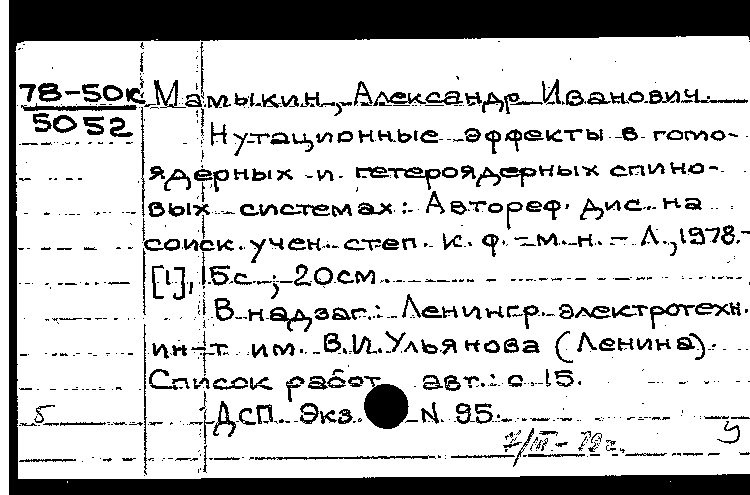 78-50к Мамыкин, Александр Иванович.
5052
Нутационные эффекты в гомо-
ядерных и гетероядерных спино-
вых системах: Автореф. дис. на
соиск. учен. степ. к. ф.-м. н. - Л., 1978.-
[1], 15с.; 20см.
В надзаг.: Ленингр. электротехн.
ин-т им. В.И. Ульянова (Ленина).
Список работ авт.: с 15.
5 ДСП Экз. N 95.
7/III-79г. У